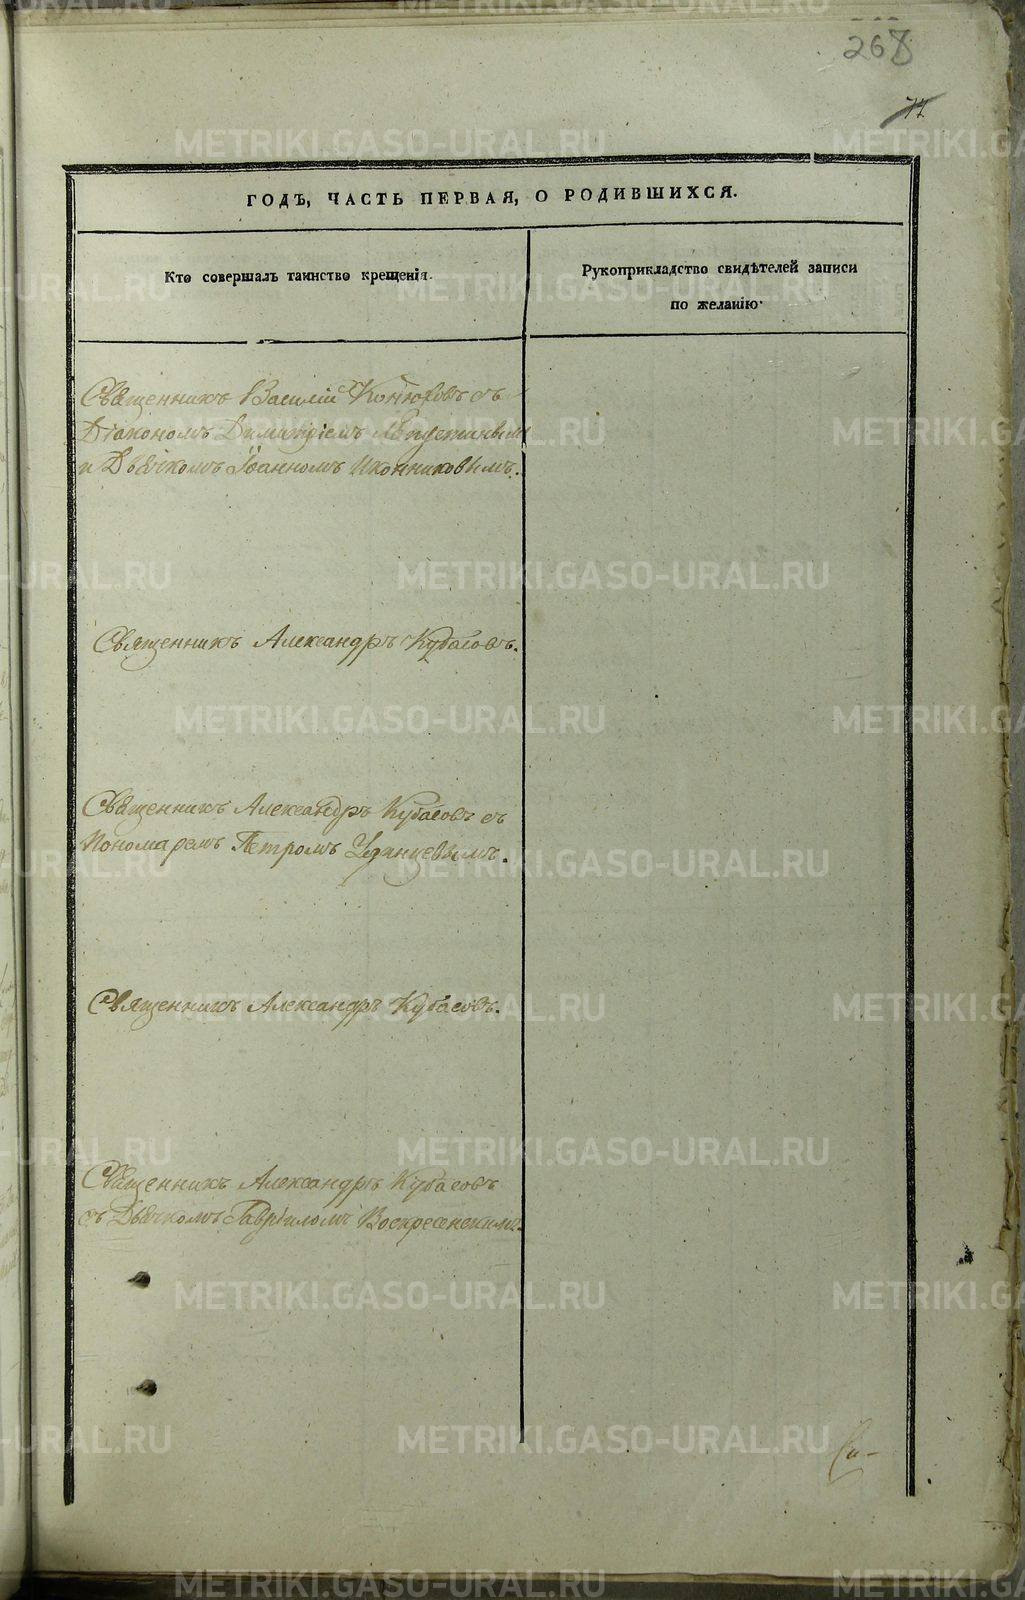 268
77
ГОДЪ, ЧАСТЬ ПЕРВАЯ, О РОДИВШИХСЯ.
Кто совершалъ таинство крещенія.
Рукоприкладство свидѣтелей записи
по желанію.
Священникъ Василій Конюховъ съ
Діакономъ Димитріемъ
и Дьячкомъ Іоанномъ Иконниковымъ.
Священникъ Александръ Кубасовъ.
Священникъ Александръ Кубасовъ съ
Пономаремъ Петромъ Удинцевымъ.
Священникъ Александръ Кубасовъ.
Священникъ Александръ Кубасовъ
съ Дьячкомъ Гавріиломъ Воскресенскимъ.
METRIKI.GASO-URAL.RU